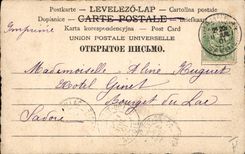 Postkarte - LEVELEZŐ-LAP - Cartolina postale
Dopisnice - CARTE POSTALE - Briefkaart
Karta korespondencyjna - Post Card
UNION POSTALE UNIVERSELLE
ОТКРЫТОЕ ПИСЬМО.
Imprimé
Mademoiselle Aline Huguet
Hotel Ginet
Bourget du Lac
Savoie